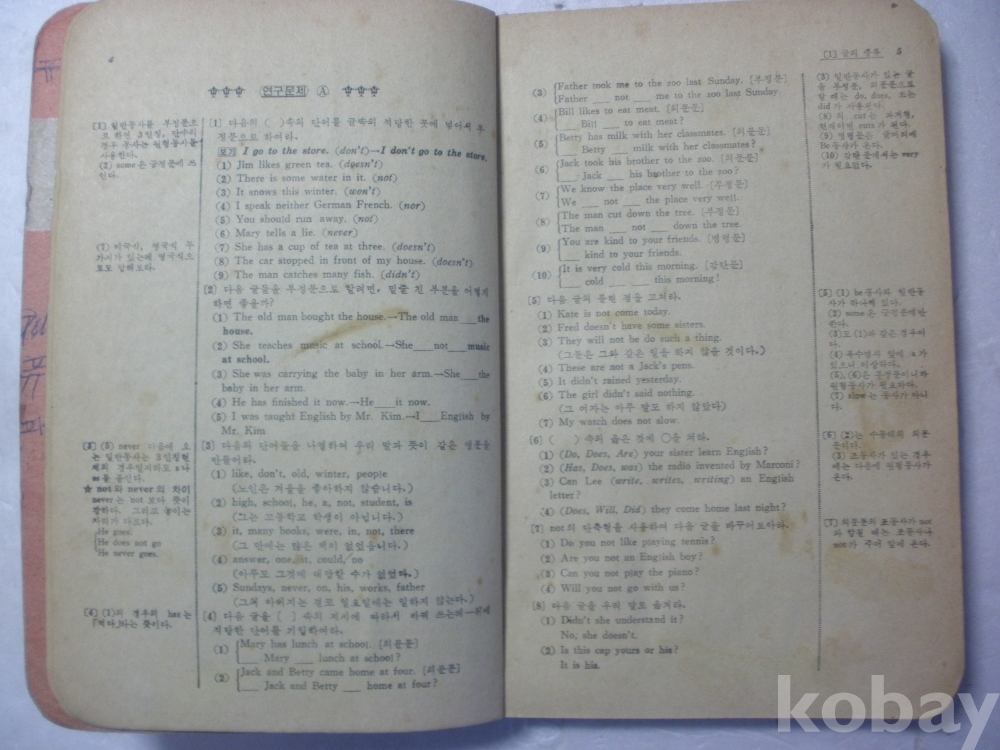 4
연구문제 Ⓐ
(1) 일반동사를 부정문으
로 하면 3인칭, 단수의
경우 동사는 원형동사를
사용한다.
(2) some은 긍정문에 쓰
인다.
(7) 미국식, 영국식 두
가지가 있는데 영국식으
로도 답해보라.
[3] (5) never 다음에 오
는 일반동사는 3인칭현
재의 경우일지라도 s나
es를 붙인다.
★ not와 never의 차이
never는 not 보다 뜻이
강하다. 그리고 놓이는
자리가 다르다.
He goes.
He does not go
He never goes.
[4] (1)의 경우의 has는
「먹다」라는 뜻이다.
[1] 다음의 ( )속의 단어를 글속의 적당한 곳에 넣어서 부
정문으로 하여라.
보기 I go to the store. (don't)→I don't go to the store.
(1) Jim likes green tea. (doesn't)
(2) There is some water in it. (not)
(3) It snows this winter. (won't)
(4) I speak neither German French. (nor)
(5) You should run away. (not)
(6) Mary tells a lie. (never)
(7) She has a cup of tea at three. (doesn't)
(8) The car stopped in front of my house. (doesn't)
(9) The man catches many fish. (didn't)
[2] 다음 글들을 부정문으로 할려면, 밑줄 친 부분을 어떻게
하면 좋을가?
(1) The old man bought the house.→The old man ___ the
house.
(2) She teaches music at school.→She ___ not ___ music
at school.
(3) She was carrying the baby in her arm.→She ___ the
baby in her arm.
(4) He has finished it now.→He ___ it now.
(5) I was taught English by Mr. Kim.→I ___ English by
Mr. Kim
[3] 다음의 단어들을 나열하여 우리 말과 뜻이 같은 영문을
만들어라.
(1) like, don't, old, winter, people
(노인은 겨울을 좋아하지 않습니다.)
(2) high, school, he, a, not, student, is
(그는 고등학교 학생이 아닙니다.)
(3) it, many books, were, in, not, there
(그 안에는 많은 책이 없었읍니다.)
(4) answer, one, it, could, no
(아무도 그것에 대답할 수가 없었다.)
(5) Sundays, never, on, his, works, father
(그의 아버지는 결코 일요일에는 일하지 않는다.)
[4] 다음 글을 [ ] 속의 지시에 따라서 바꿔 쓰는데 __위에
적당한 단어를 기입하여라.
(1) Mary has lunch at school. [의문문]
___ Mary ___ lunch at school?
(2) Jack and Betty came home at four. [의문문]
___ Jack and Betty ___ home at four?
(1) 글의 종류 5
(3) Father took me to the zoo last Sunday. [부정문]
Father ___ not ___ me to the zoo last Sunday.
(4) Bill likes to eat meat. [의문문]
___ Bill ___ to eat meat?
(5) Betty has milk with her classmates. [의문문]
___ Betty ___ milk with her classmates?
(6) Jack took his brother to the zoo. [의문문]
___ Jack ___ his brother to the zoo?
(7) We know the place very well. [부정문]
We ___ not ___ the place very well.
(8) The man cut down the tree. [부정문]
The man ___ not ___ down the tree.
(9) You are kind to your friends. [명령문]
___ kind to your friends.
(10) It is very cold this morning. [감탄문]
___ cold ___ ___ this morning!
[5] 다음 글의 틀린 점을 고쳐라.
(1) Kate is not come today.
(2) Fred doesn't have some sisters.
(3) They will not be do such a thing.
(그들은 그와 같은 일을 하지 않을 것이다.)
(4) These are not a Jack's pens.
(5) It didn't rained yesterday.
(6) The girl didn't said nothing.
(그 여자는 아무 말도 하지 않았다)
(7) My watch does not slow.
[6] ( )속의 옳은 것에 ○을 쳐라.
(1) (Do, Does, Are) your sister learn English?
(2) (Has, Does, was) the radio invented by Marconi?
(3) Can Lee (write, writes, writing) an English
letter?
(4) (Does, Will, Did) they come home last night?
[7] not의 단축형을 사용하여 다음 글을 바꾸어보아라.
(1) Do you not like playing tennis?
(2) Are you not an English boy?
(3) Can you not play the piano?
(4) Will you not go with us?
[8] 다음 글을 우리 말로 옮겨라.
(1) Didn't she understand it?
No, she doesn't.
(2) Is this cap yours or his?
It is his.
(3) 일반동사가 있는 글
을 부정문, 의문문으로
할 때는 do, does, 또는
did가 사용된다.
(8)의 cut는 과거형,
현재이면 cuts가 된다.
(9) 명령문은 글머리에
Be동사가 온다.
(10) 감탄문에서는 very
가 필요없다.
[5] (1) be동사와 일반동
사가 하나씩 있다.
(2) some은 긍정문에만
쓴다.
(3)도 (1)과 같은 경우이
다.
(4) 복수명사 앞에 a가
있으니 이상하다.
(5), (6)은 부정문이니까
원형동사가 필요하다.
(7) slow는 동사가 아니
다.
[6] (2)는 수동태의 의문
문이다.
(3) 조동사가 있는 경우
에는 다음에 원형동사가
온다.
[7] 의문문의 조동사가 not
와 합할 때는 조동사나
not가 주어 앞에 온다.
kobay